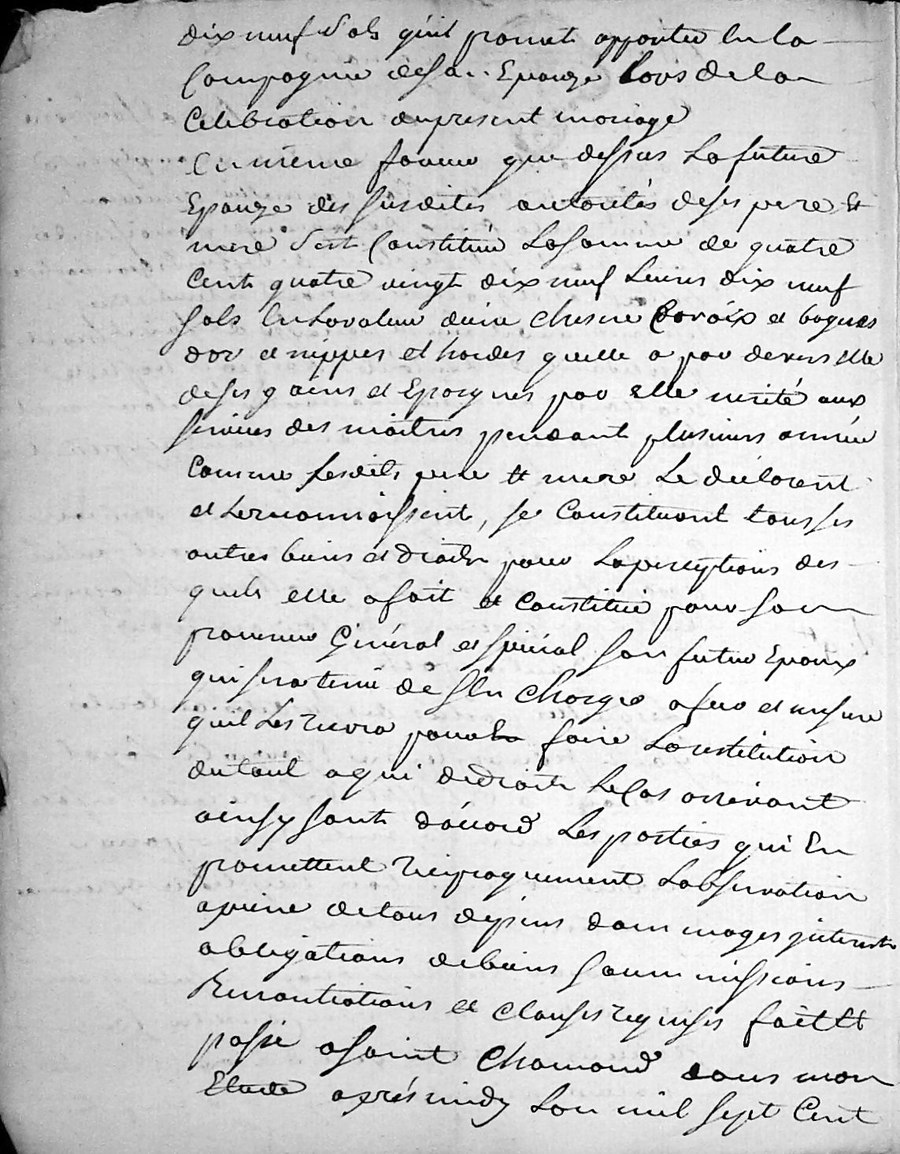 dix neuf sols qu'il promet apporter en la
Compagnie de sa Epouze Lors de la
Celebration du present mariage
En même faveur que dessus La future
Epouze des susdites autorités de ses pere Et
mere s'est Constitué La somme de quatre
Cent quatre vingt dix neuf Livres dix neuf
sols En La valeur d'une chesne Croix et bagues
d'or et nippes et hardes quelle a par devers elle
de ses gains et Epargnes par elle mérité aux
services des maitres pendant plusieurs année
Comme Lesdits pere et mere Le déclarent
et Le reconnoissent, se Constituant tous ses
autres biens et droits pour La perceptions des
quels elle a fait et Constitué pour son
procureur Général et spécial son futur Epoux
qui sera tenu de s'En Charger a fur et mesure
qu'il Les recevra pour En faire La restitution
du tout a qui de droit Le Cas arrivant
ainsy sont d'accord Les parties qui En
promettent reciproquement L'observation
a peine de tous depens dommages interests
obligations de biens soummissions
Renontiations et clauses requises fait Et
passé a saint Chamond dans mon
Etude aprés midy L'an mil sept Cent